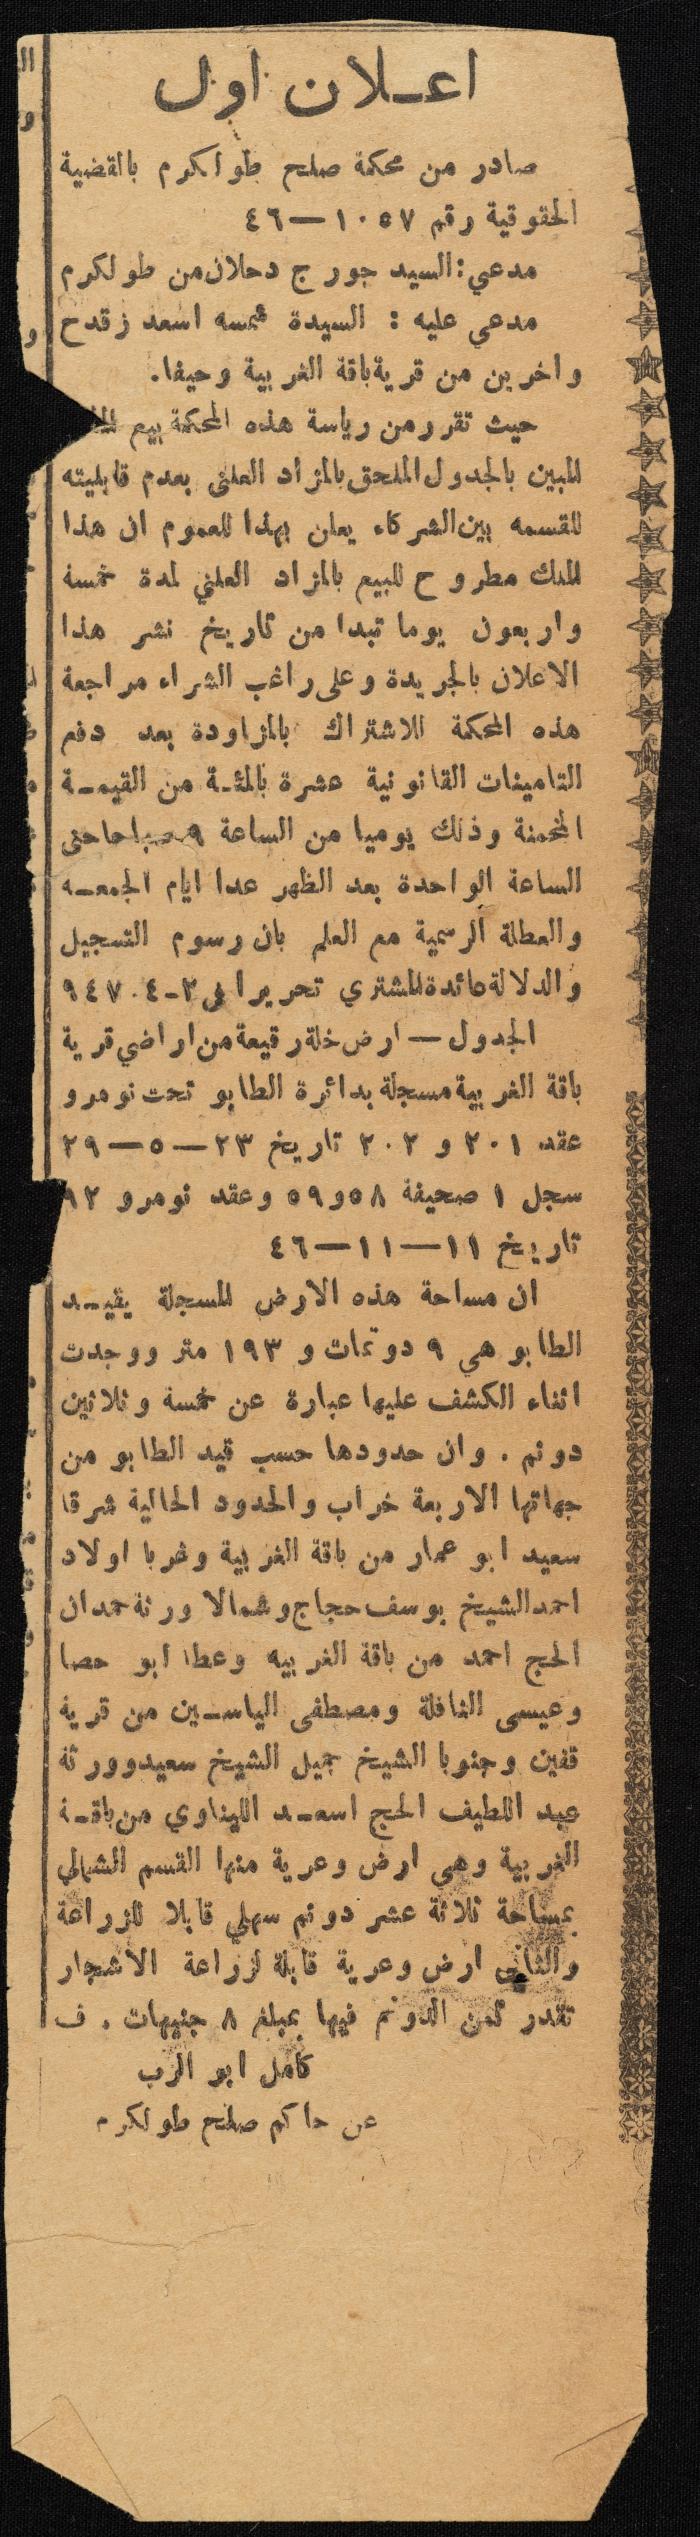 اعـلان اول
صادر من محكمة صلح طولكرم بالقضية
الحقوقية رقم ١٠٥٧—٤٦
مدعي : السيد جورج دحلان من طولكرم
مدعي عليه : السيدة شمسه اسعد زقدح
واخرين من قرية باقة الغربية وحيفا.
حيث تقرر من رياسة هذه المحكمة بيع
المبين بالجدول الملحق بالمزاد العلني بعدم قابليته
للقسمه بين الشركاء يعلن بهذا للعموم ان هذا
الملك مطروح للبيع بالمزاد العلني لمدة خمسة
واربعون يوما تبدا من تاريخ نشر هذا
الاعلان بالجريدة وعلى راغب الشراء مراجعة
هذه المحكمة للاشتراك بالمزاودة بعد دفع
التامينات القانونية عشرة بالمئـة من القيمـة
المخمنة وذلك يوميا من الساعة ٩ صباحا حتى
الساعة الواحدة بعد الظهر عدا ايام الجمعـه
والعطلة الرسمية مع العلم بان رسوم التسجيل
والدلالة عائدة للمشتري تحريرا في ٢-٤-٩٤٧
الجدول — ارض خلة رقيعة من اراضي قرية
باقة الغربية مسجلة بدائرة الطابو تحت نومرو
عقد ٢٠١ و ٢٠٢ تاريخ ٢٣—٥—٢٩
سجل ١ صحيفة ٥٨ و٥٩ وعقد نومرو ٩٢
تاريخ ١١—١١—٤٦
ان مساحة هذه الارض المسجلة بقيـد
الطابو هي ٩ دونمات و ١٩٣ متر ووجدت
اثناء الكشف عليها عبارة عن خمسة وثلاثين
دونم . وان حدودها حسب قيد الطابو من
جهاتها الاربعة خراب والحدود الحالية شرقا
سعيد ابو عمار من باقة الغربية وغربا اولاد
احمد الشيخ يوسف حجاج وشمالا ورثة حمدان
الحج احمد من باقة الغربيه وعطا ابو حصا
وعيسى النافلة ومصطفى الياسـين من قرية
قفين وجنوبا الشيخ جميل الشيخ سعيد وورثة
عبد اللطيف الحج اسعـد اللبناوي من باقـة
الغربية وهي ارض وعرية منها القسم الشمالي
بمساحة ثلاثة عشر دونم سهلي قابلا للزراعة
والثاني ارض وعرية قابلة لزراعة الاشجار
تقدر ثمن الدونم فيها بمبلغ ٨ جنيهات . ف
كامل ابو الرب
عن حاكم صلح طولكرم